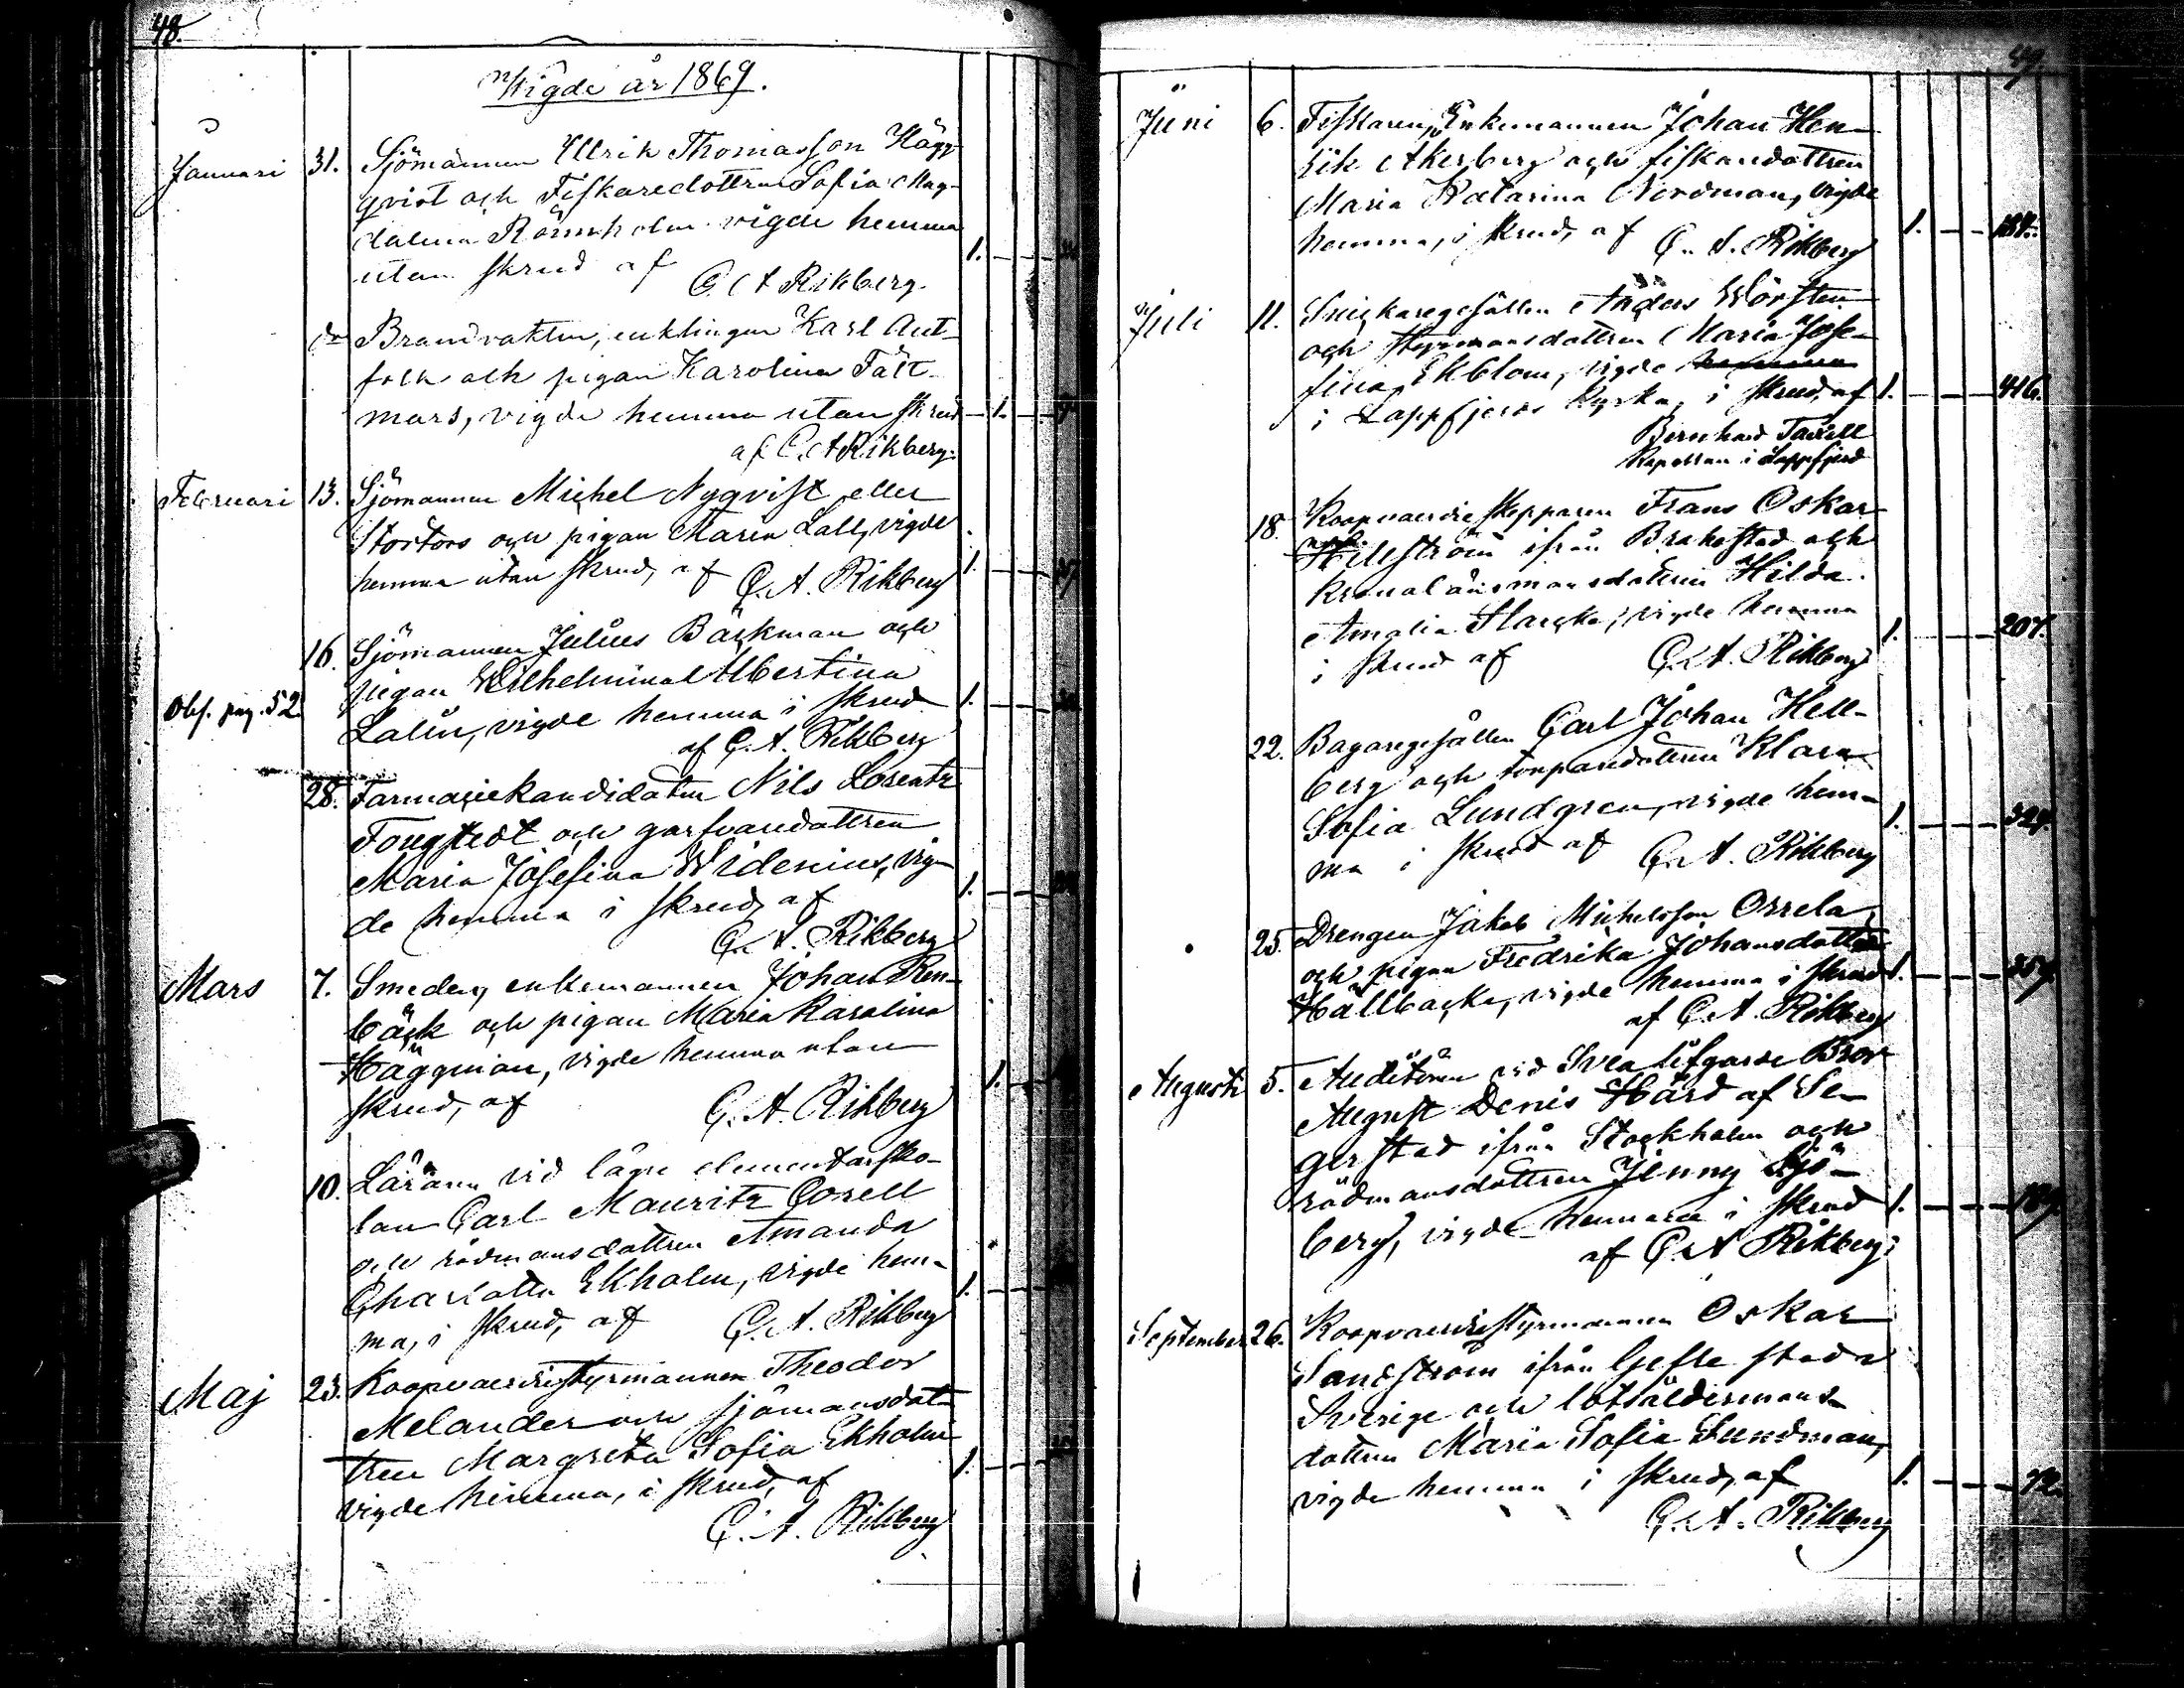 48.
Wigde år 1869.
Januari 31. Sjömannen Ulrik Thomasson Hägg-
qvist och Fiskaredottren Sofia Mag-
dalena Rönnholm vigde hemma
utan skrud af 1.
C. A. Rikberg.
do Brandvakten, enklingen Karl Ant-
folk och pigan Karolina Fält-
mars, vigde hemma utan skrud 1.
af C. A. Rikberg.
Februari 13. Sjömannen Michel Nyqvist eller
Stortors och pigan Maria Lall, vigde
hemma utan skrud, af C. A. Rikberg 1.
16. Sjömannen Julius Bäckman och
pigan Wilhelmina Albertina
Obs. pag. 52. Lalin, vigde hemma i skrud 1.
af C. A. Rikberg
28. Farmaciekandidaten Nils Lorentz
Fougstedt och garfvaredottren
Maria Josefina Widenius, vig-
de hemma i skrud, af 1.
C. A. Rikberg
Mars 7. Smeden, enkemannen Johan Ren-
bäck och pigan Maria Karolina
Häggman, vigde hemma utan
skrud, af C. A. Rikberg 1.
10. Läraren vid lägre elementarsko-
lan Carl Mauritz Corell
och rådmansdottren Amanda
Charlotta Ekholm, vigde hem-
ma, i skrud, af C. A. Rikberg 1.
Maj 23. Koopvaerdistyrmannen Theodor
Melander och sjömansdot-
tren Margreta Sofia Ekholm
vigde hemma, i skrud, af 1.
C. A. Rikberg
49.
Juni 6. Fiskaren, Enkemannen Johan Hen-
rik Åkerberg och fiskaredottren
Maria Katarina Nordman, vigde
hemma, i skrud, af C. A. Rikberg 1. 184.
Juli 11. Snickaregesällen Anders Wörsten
och styrmansdottren Maria Jose-
fina Ekblom, vigde hemma
i Lappfjerds Kyrka, i skrud, af 1. 416.
Bernhard Taxell
Kapellan i Lappfjerd
18. Koopvaerdieskepparen Frans Oskar
Hellström ifrån Brahestad och
kronolänsmansdottren Hilda
Amalia Starcke, vigde hemma
i skrud af C. A. Rikberg 1. 207.
22. Bagaregesällen Carl Johan Hell-
berg och torparedottren Klara
Sofia Lundgren, vigde hem-
ma i skrud af C. A. Rikberg 1. 324.
25. Drengen Jakob Michelsson Orrela
och pigan Fredrika Johansdotter
Hällbacka, vigde hemma i skrud 1. 357.
af C. A. Rikberg
Augusti 5. Auditören vid Svea lifgarde Bror
August Denis Hård af Se-
gerstad ifrån Stockholm och
rådmansdottren Jenny Sjö-
berg, vigde hemma i skrud 1. 189.
af C. A. Rikberg.
September 26. Koopvaerdistyrmannen Oskar
Sandström ifrån Gefle stad
Sverige och lotsåldermans-
dottren Maria Sofia Sundman,
vigde hemma i skrud, af 1. 72.
C. A. Rikberg